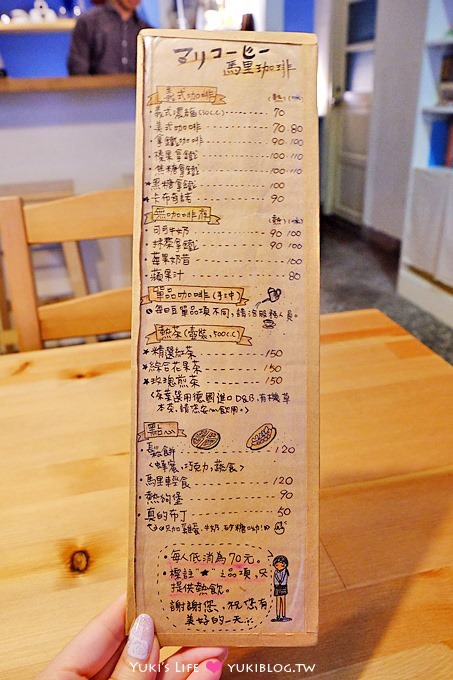 マリコーヒー
馬里珈琲
義式咖啡 (熱) (冰)
・義式濃縮(50c.c.) 70
・美式咖啡 70 80
・拿鐵咖啡 90 100
・榛果拿鐵 100 110
・焦糖拿鐵 100 110
★黑糖拿鐵 100
★卡布奇諾 90
無咖啡 (熱) (冰)
・可可牛奶 90 100
・抹茶拿鐵 90 100
・莓果奶昔 100
・蘋果汁 80
單品咖啡(手沖)
每日豆單品項不同，請洽服務人員。
熱茶(壺裝，500c.c.)
★精選紅茶 150
★綜合花果茶 150
★玫瑰煎茶 150
〈茶葉選用德國進口D&B，有機草
本茶，請您安心飲用。〉
點心
・鬆餅 120
〈蜂蜜，巧克力，蔬食〉
・馬里輕食 120
・熱狗堡 90
・真的布丁 50
只加雞蛋、牛奶、砂糖呦!!
・每人低消為70元。
・標註"★"之品項，只
提供熱飲。
謝謝您，祝您有
美好的一天
YUKI'S LIFE ♥ YUKIBLOG.TW